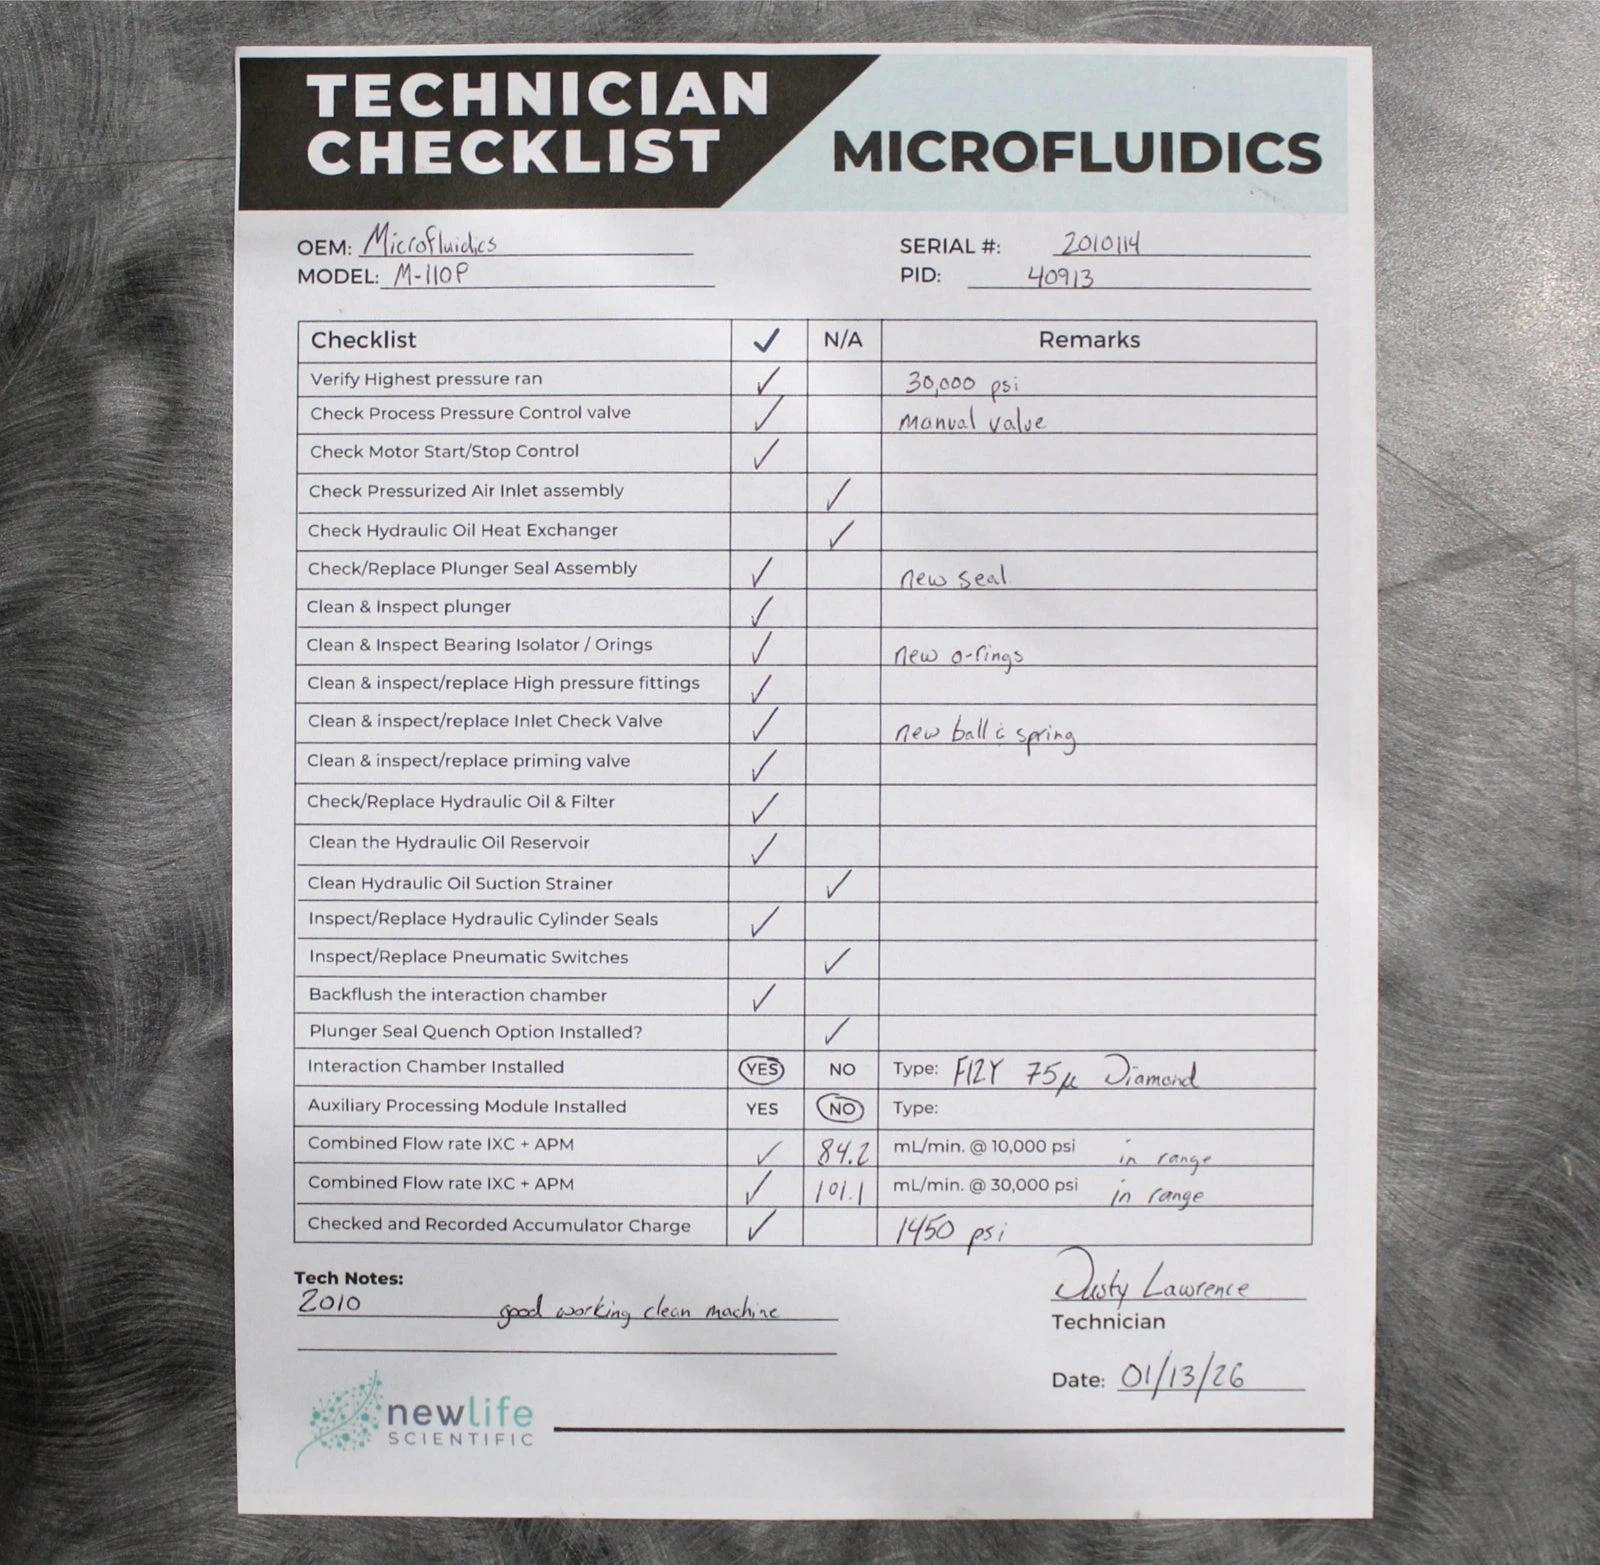 TECHNICIAN
CHECKLIST
MICROFLUIDICS
OEM: Microfluidics SERIAL #: 2010114
MODEL: M-110P PID: 40913
Checklist ✓ N/A Remarks
Verify Highest pressure ran ✓ 30,000 psi
Check Process Pressure Control valve ✓ Manual valve
Check Motor Start/Stop Control ✓
Check Pressurized Air Inlet assembly ✓
Check Hydraulic Oil Heat Exchanger ✓
Check/Replace Plunger Seal Assembly ✓ new seal
Clean & Inspect plunger ✓
Clean & Inspect Bearing Isolator / Orings ✓ new o-rings
Clean & inspect/replace High pressure fittings ✓
Clean & inspect/replace Inlet Check Valve ✓ new ball & spring
Clean & inspect/replace priming valve ✓
Check/Replace Hydraulic Oil & Filter ✓
Clean the Hydraulic Oil Reservoir ✓
Clean Hydraulic Oil Suction Strainer ✓
Inspect/Replace Hydraulic Cylinder Seals ✓
Inspect/Replace Pneumatic Switches ✓
Backflush the interaction chamber ✓
Plunger Seal Quench Option Installed? ✓
Interaction Chamber Installed YES NO Type: F12Y 75µ Diamond
Auxiliary Processing Module Installed YES NO Type:
Combined Flow rate IXC + APM ✓ 84.2 mL/min. @ 10,000 psi in range
Combined Flow rate IXC + APM ✓ 101.1 mL/min. @ 30,000 psi in range
Checked and Recorded Accumulator Charge ✓ 1450 psi
Tech Notes:
2010 good working clean machine
Dusty Lawrence
Technician
Date: 01/13/26
newlife
SCIENTIFIC